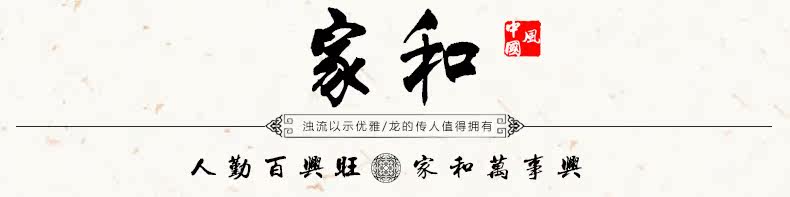 家和
中國風
浊流以示优雅/龙的传人值得拥有
人勤百興旺 家和萬事興